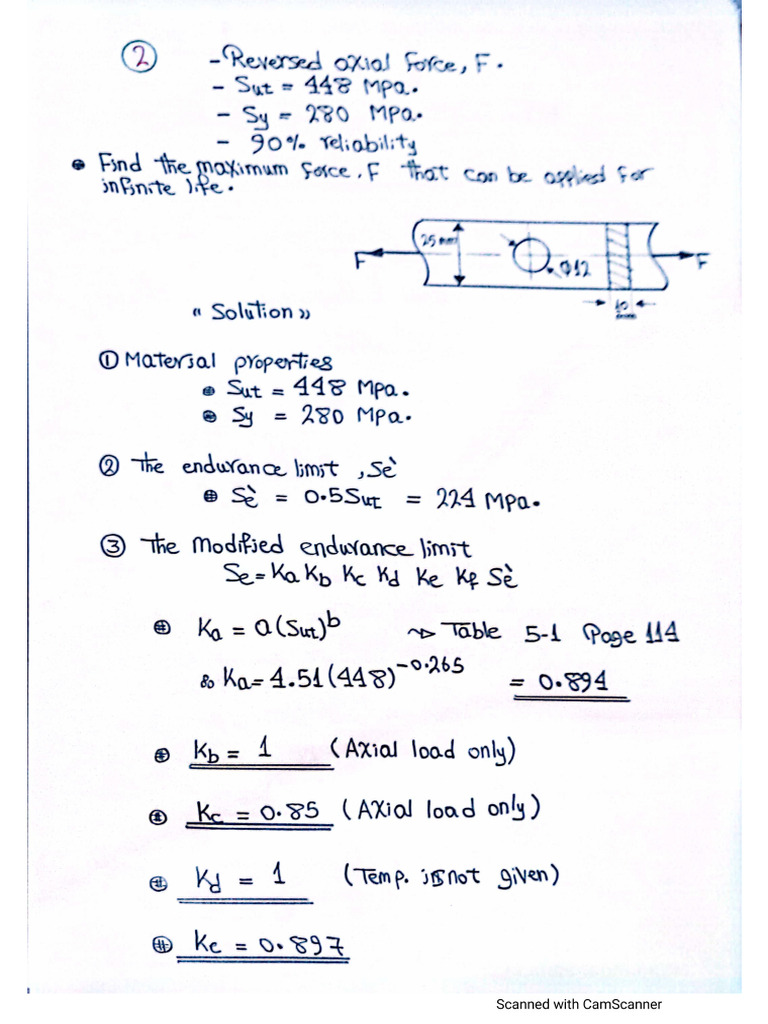 2
- Reversed axial force, F.
- Sut = 448 MPa.
- Sy = 280 MPa.
- 90% reliability
Find the maximum force, F that can be applied for
infinite life.
25 mm
F
Ø12
F
10
mm
« Solution »
① Material properties
Sut = 448 MPa.
Sy = 280 MPa.
② The endurance limit, Sè
Sè = 0.5Sut = 224 MPa.
③ The Modified endurance limit
Se = Ka Kb Kc Kd Ke Kf Sè
Ka = a(Sut)^b ~> Table 5-1 Page 114
& Ka = 4.51(448)^-0.265 = 0.894
Kb = 1 (Axial load only)
Kc = 0.85 (AXial load only)
Kd = 1 (Temp. is not given)
Ke = 0.897
Scanned with CamScanner